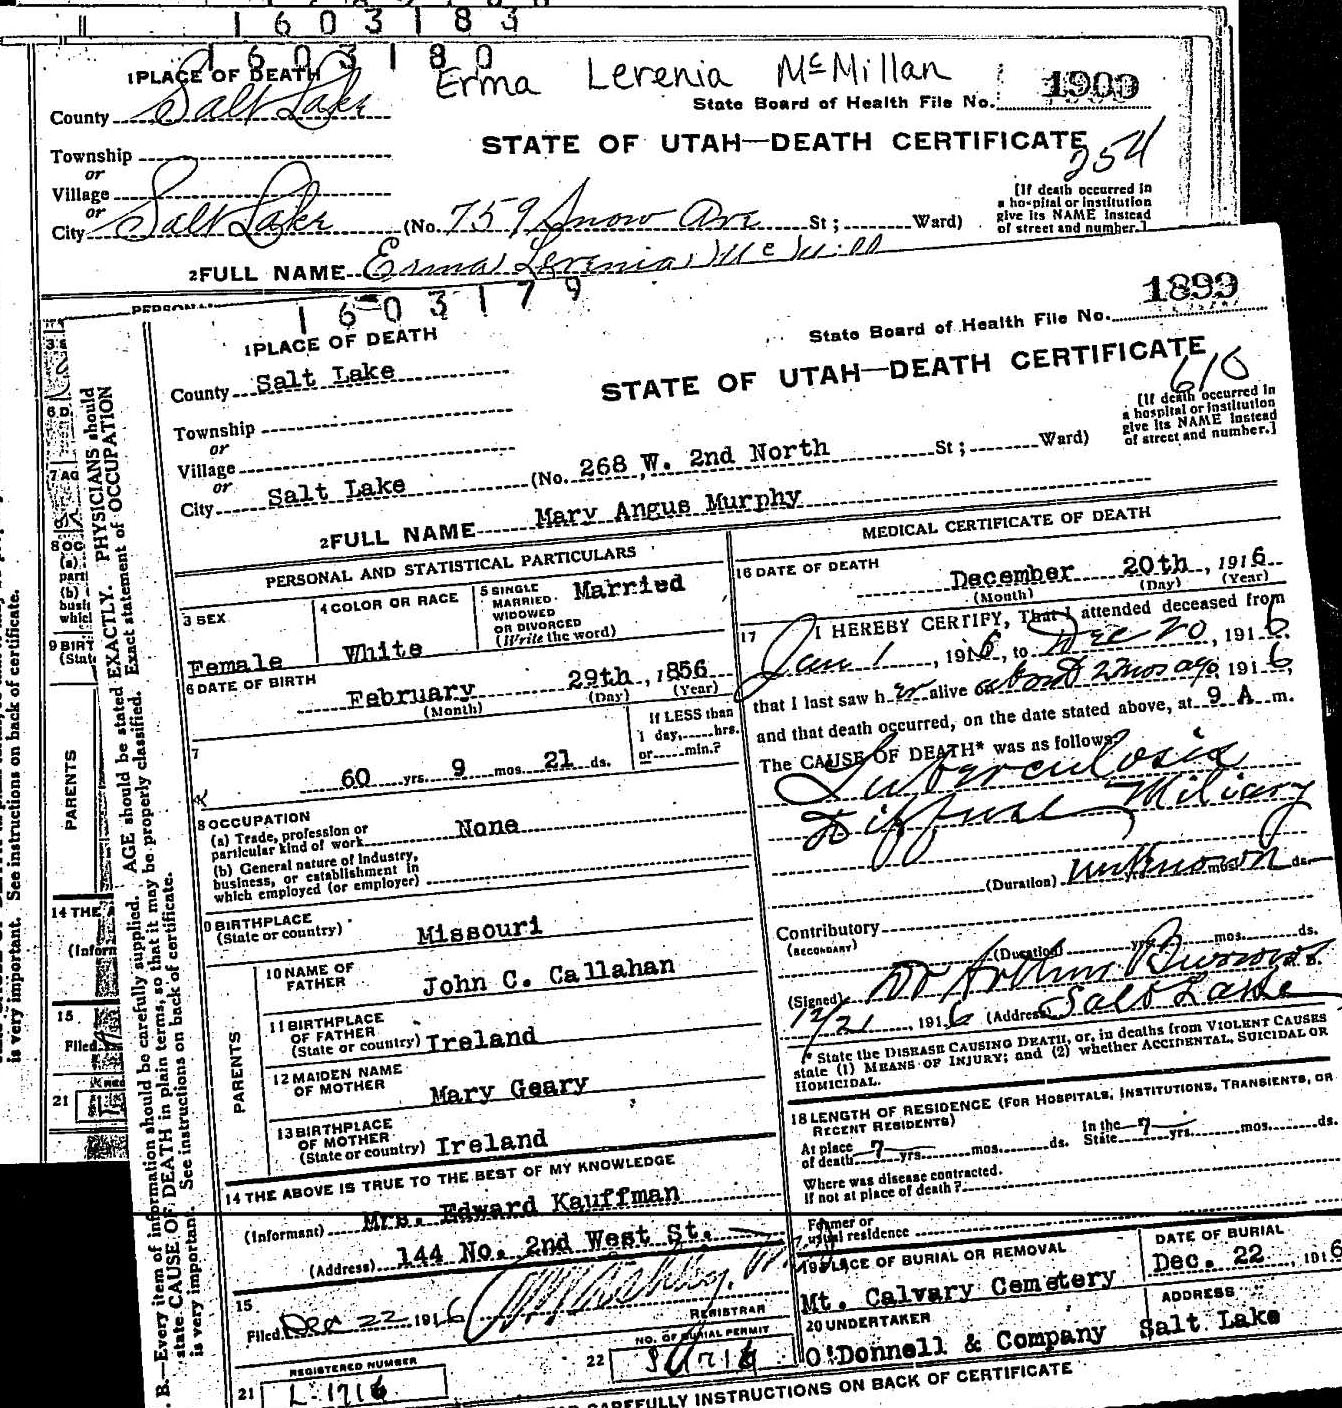 1603183
1603180
1 PLACE OF DEATH
Erma Lerenia McMillan
State Board of Health File No. 1909
County Salt Lake
STATE OF UTAH—DEATH CERTIFICATE
254
Township
or
Village
or
City Salt Lake (No. 759 Snow Ave St; Ward)
[If death occurred in
a hospital or institution
give its NAME instead
of street and number.]
2 FULL NAME Erma Lerenia
1603179
1 PLACE OF DEATH
State Board of Health File No. 1899
County Salt Lake
STATE OF UTAH—DEATH CERTIFICATE
610
Township
or
Village
or
City Salt Lake (No. 268 W. 2nd North St; Ward)
[If death occurred in
a hospital or institution
give its NAME instead
of street and number.]
2 FULL NAME Mary Angus Murphy
PERSONAL AND STATISTICAL PARTICULARS
3 SEX Female
4 COLOR OR RACE White
5 SINGLE
MARRIED
WIDOWED
OR DIVORCED
(Write the word) Married
6 DATE OF BIRTH
February 29th, 1856
(Month) (Day) (Year)
7
60 yrs. 9 mos. 21 ds.
If LESS than
1 day, hrs.
or min.?
8 OCCUPATION
(a) Trade, profession or
particular kind of work None
(b) General nature of industry,
business, or establishment in
which employed (or employer)
9 BIRTHPLACE
(State or country) Missouri
PARENTS
10 NAME OF
FATHER John C. Callahan
11 BIRTHPLACE
OF FATHER
(State or country) Ireland
12 MAIDEN NAME
OF MOTHER Mary Geary
13 BIRTHPLACE
OF MOTHER
(State or country) Ireland
14 THE ABOVE IS TRUE TO THE BEST OF MY KNOWLEDGE
(Informant) Mrs. Edward Kauffman
(Address) 144 No. 2nd West St.
15
Filed Dec 22 1916
REGISTRAR
21 REGISTERED NUMBER
L-1716
22 NO. OF BURIAL PERMIT
MEDICAL CERTIFICATE OF DEATH
16 DATE OF DEATH
December 20th, 1916
(Month) (Day) (Year)
17 I HEREBY CERTIFY, That I attended deceased from
Jan 1, 1916, to Dec 20, 1916,
that I last saw her alive on about 2 mos ago, 1916,
and that death occurred, on the date stated above, at 9 A m.
The CAUSE OF DEATH* was as follows:
Tuberculosis
Diffuse Miliary
(Duration) unknown yrs. mos. ds.
Contributory
(SECONDARY)
(Duration) yrs. mos. ds.
(Signed) Dr Arthur M. D.
12/21, 1916 (Address) Salt Lake
* State the DISEASE CAUSING DEATH, or, in deaths from VIOLENT CAUSES
state (1) MEANS OF INJURY; and (2) whether ACCIDENTAL, SUICIDAL OR
HOMICIDAL.
18 LENGTH OF RESIDENCE (FOR HOSPITALS, INSTITUTIONS, TRANSIENTS, OR
RECENT RESIDENTS)
At place
of death 7 yrs. mos. ds.
In the
State 7 yrs. mos. ds.
Where was disease contracted,
if not at place of death?
Former or
usual residence
19 PLACE OF BURIAL OR REMOVAL
Mt. Calvary Cemetery
DATE OF BURIAL
Dec. 22, 1916
20 UNDERTAKER
O'Donnell & Company
ADDRESS
Salt Lake
CAREFULLY INSTRUCTIONS ON BACK OF CERTIFICATE
B.—Every item of information should be carefully supplied. AGE should be stated EXACTLY. PHYSICIANS should
state CAUSE OF DEATH in plain terms, so that it may be properly classified. Exact statement of OCCUPATION
is very important. See instructions on back of certificate.
PARENTS
14 THE
(Inform
15
Filed
21
is very important. See instructions on back of certificate.